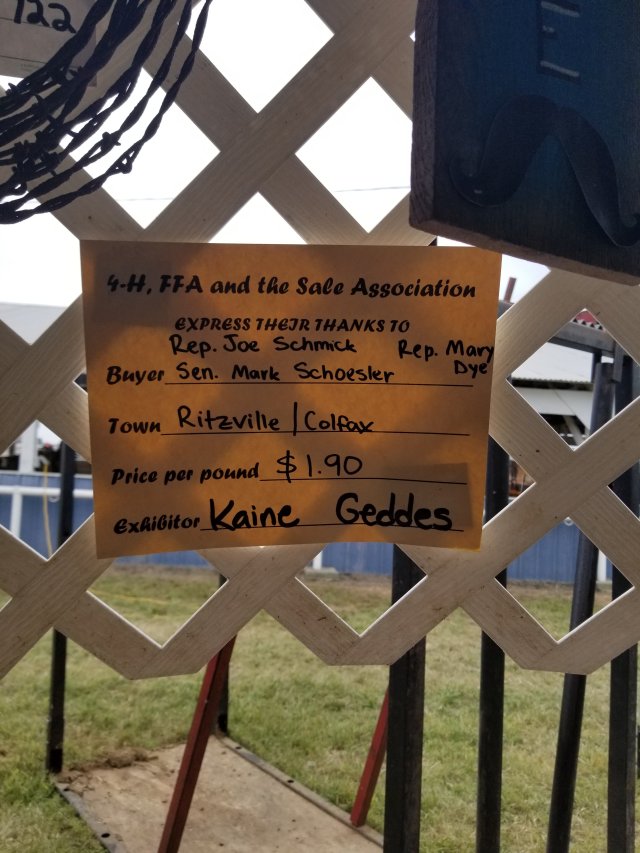 722
E
4-H, FFA and the Sale Association
EXPRESS THEIR THANKS TO
Rep. Joe Schmick Rep. Mary Dye
Buyer Sen. Mark Schoesler
Town Ritzville | Colfax
Price per pound $1.90
Exhibitor Kaine Geddes